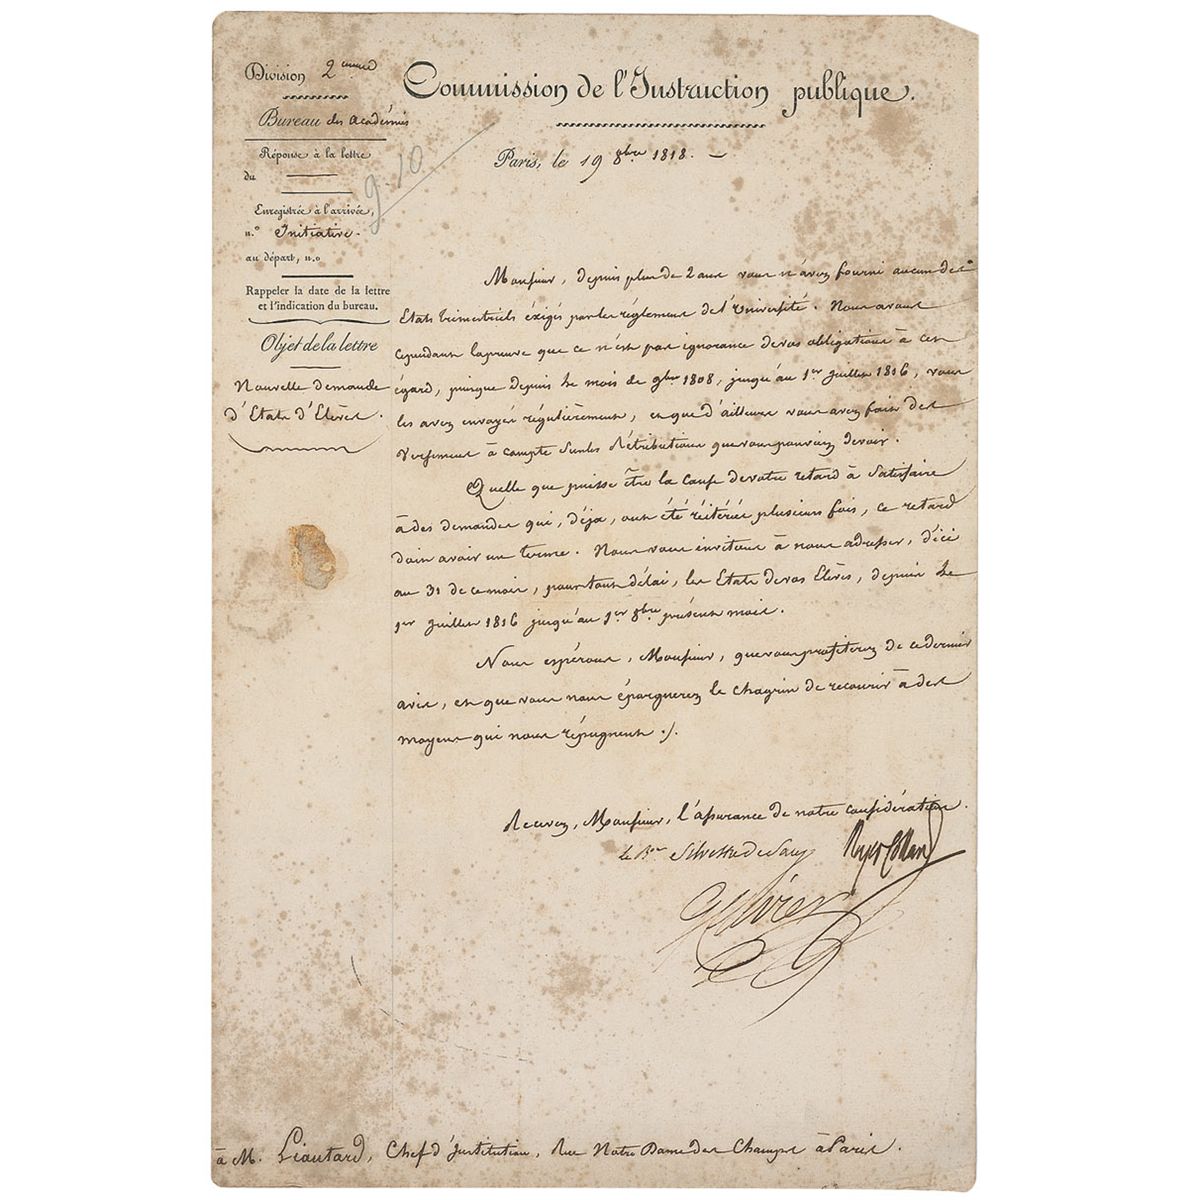 Division 2eme
Bureau des Académies
Réponse à la lettre
du
Enregistrée à l'arrivée,
n.º Initiative.
au départ, n.o
Rappeler la date de la lettre
et l'indication du bureau.
Objet de la lettre
Nouvelle demande
d'Etats d'Elèves.
9.10
Commission de l'Instruction publique.
Paris, le 19 8bre 1818.
Monsieur, depuis plus de 2 ans vous n'avez fourni aucun des
Etats trimestriels éxigés par les réglemens de l'Université. Nous avons
cependant la preuve que ce n'est pas ignorance de vos obligations à cet
égard, puisque depuis le mois de 9bre 1808, jusqu'au 1er Juillet 1816, vous
les avez envoyés régulièrement, et que d'ailleurs vous avez fait des
versemens à compte sur les Rétributions que vous pouviez devoir.
Quelle que puisse être la cause de votre retard à satisfaire
à des demandes qui, déja, ont été réitérées plusieurs fois, ce retard
doit avoir un terme. Nous vous invitons à nous adresser, d'ici
au 31 de ce mois, pour tout délai, les Etats de vos Elèves, depuis le
1er Juillet 1816 jusqu'au 1er 8bre présent mois.
Nous espérons, Monsieur, que vous profiterez de ce dernier
avis, et que vous nous épargnerez le chagrin de recourir à des
moyens qui nous répugnent ./.
Recevez, Monsieur, l'assurance de notre considération.
le Bon Silvestre de Sacy Royer Collard
G Cuvier
à M. Liautard, Chef d'Institution, Rue Notre Dame des Champs à Paris.